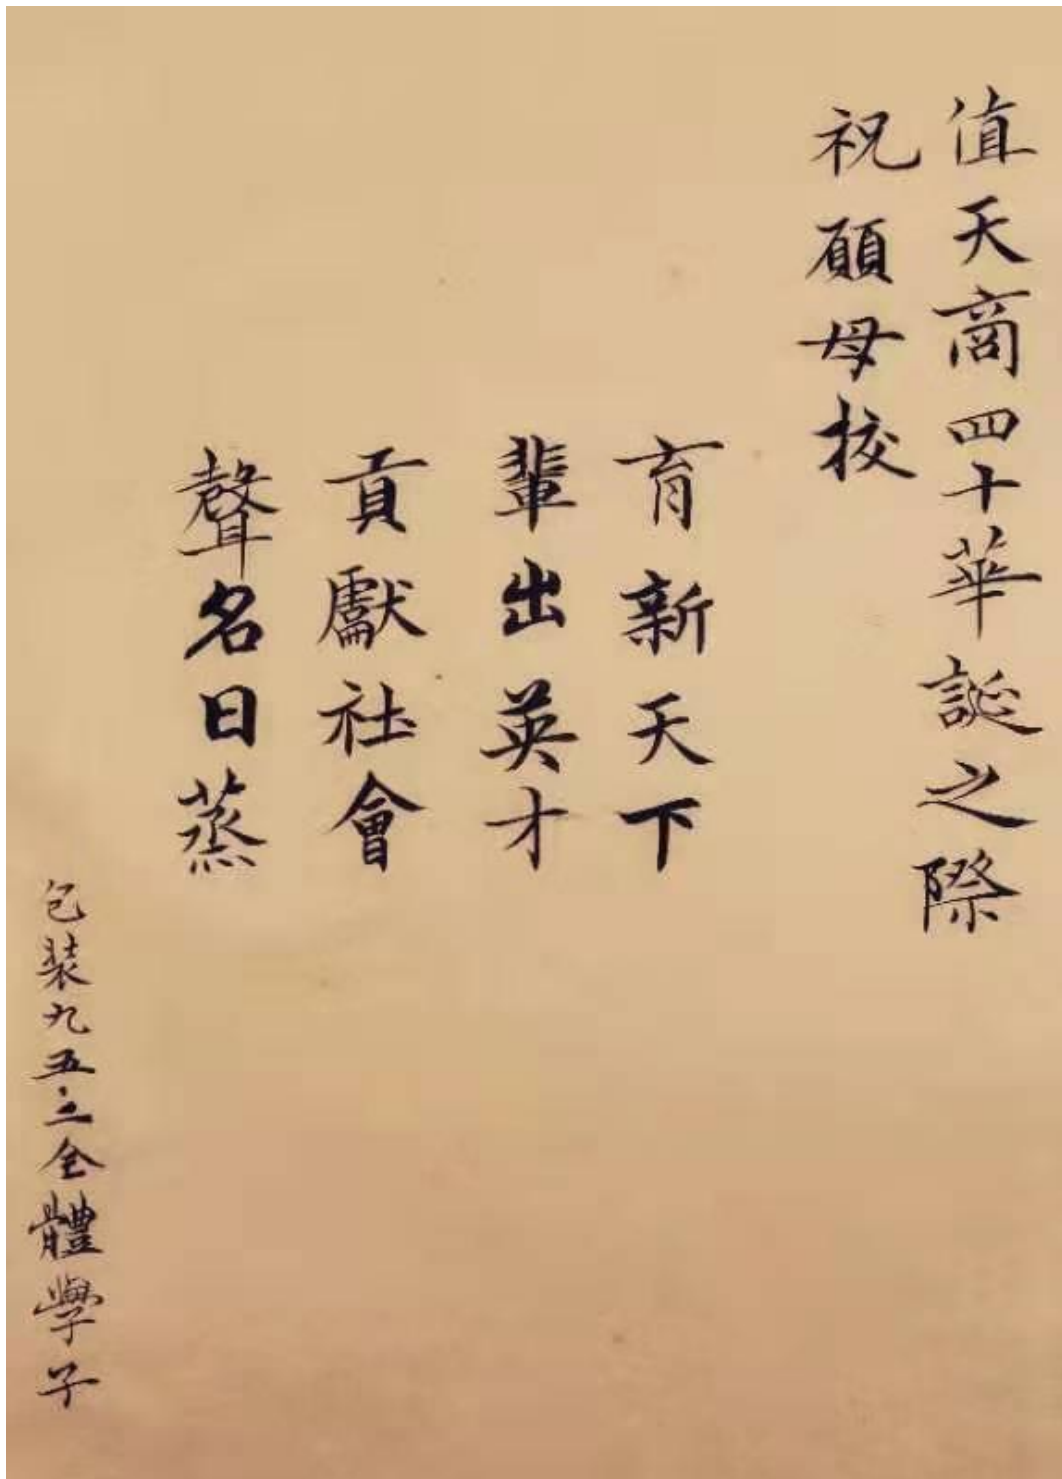 值天商四十華誕之際
祝願母校
育新天下
輩出英才
貢獻社會
聲名日蒸
包装九五·二全體學子